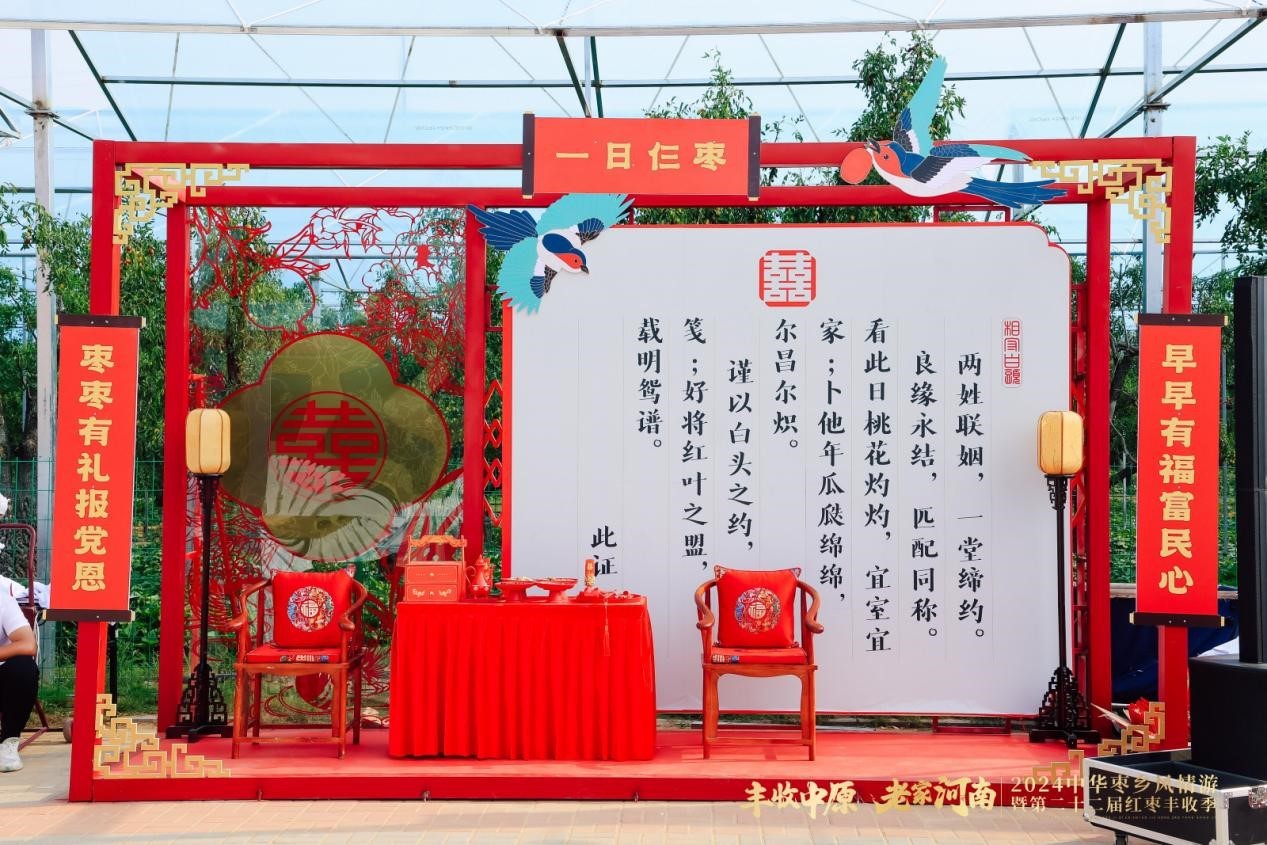 一日仨枣
枣枣有礼报党恩
早早有福富民心
囍
囍
相守白頭
两姓联姻，一堂缔约。
良缘永结，匹配同称。
看此日桃花灼灼，宜室宜
家；卜他年瓜瓞绵绵，
尔昌尔炽。
谨以白头之约，
笺；好将红叶之盟，
载明鸳谱。
此证
福
福
丰收中原 老家河南
2024中华枣乡风情游
暨第二十二届红枣丰收季